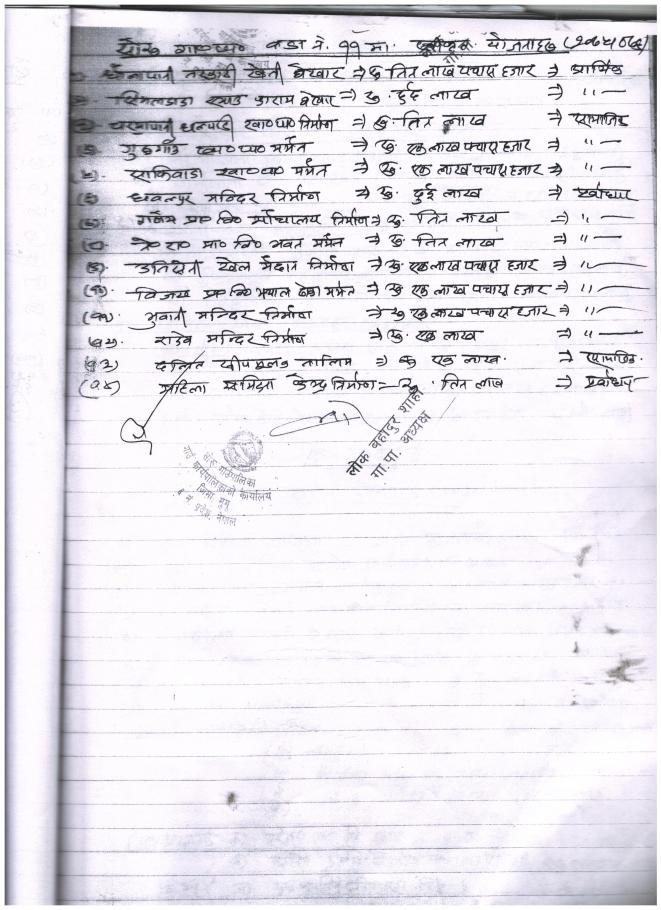 सोरु गा०पा० वडा नं. ११ मा. स्वीकृत योजनाहरु (२०७५/०७६)
धैनापानी तरकारी खेती वेर्खार ⇒ रु तिन लाख पचास हजार ⇒ आर्थिक
स्याउ फाराम वेर्खार ⇒ रु. दुई लाख ⇒ "—
खा०पा० निर्माण ⇒ रु. तिन लाख ⇒ सामाजिक
खा०पा० मर्मत ⇒ रु. एक लाख पचास हजार ⇒ "—
(५). साकिवाडा खा०पा० मर्मत ⇒ रु. एक लाख पचास हजार ⇒ "—
(६) धवलपुर मन्दिर निर्माण ⇒ रु. दुई लाख ⇒ पूर्वाधार
(७) गणेश प्रा० वि० शौचालय निर्माण ⇒ रु. तिन लाख ⇒ "—
(८). ने० रा० प्रा० वि० भवन मर्मत ⇒ रु. तिन लाख ⇒ "—
(९). खेल मैदान निर्माण ⇒ रु. एक लाख पचास हजार ⇒ "—
(१०). विजय प्रा० वि० मर्मत ⇒ रु. एक लाख पचास हजार ⇒ "—
(११). भुवानी मन्दिर निर्माण ⇒ रु एक लाख पचास हजार ⇒ "—
(१२). मन्दिर निर्माण ⇒ रु. एक लाख ⇒ "—
(१३) दलित सीपमुलक तालिम ⇒ रु एक लाख. ⇒ सामाजिक
(१४) महिला केन्द्र निर्माण = रु. तिन लाख ⇒ पूर्वाधार
लोक बहादुर शाही
गा.पा. अध्यक्ष
सोरु गाउँपालिका
गाउँ कार्यपालिकाको कार्यालय
जिल्ला मुगु
प्रदेश, नेपाल